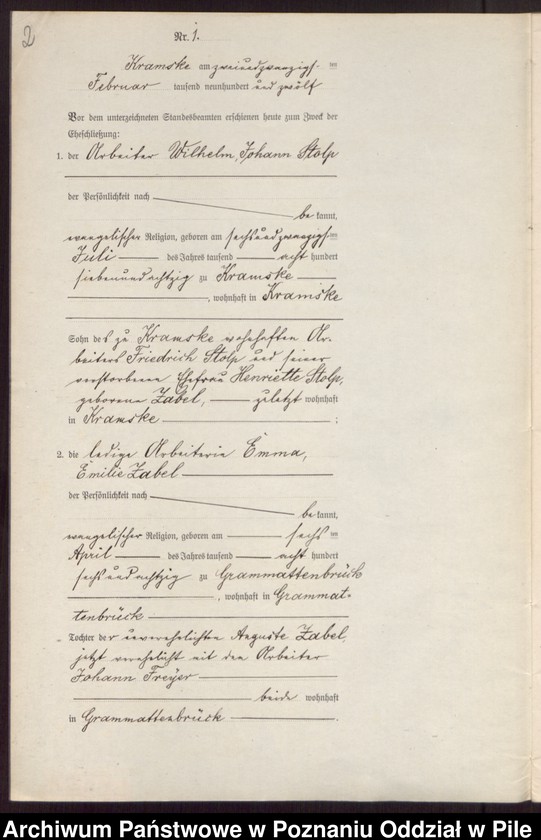 2
Nr. 1.
Kramske am zweiundzwanzigsten
Februar tausend neunhundert und zwölf
Vor dem unterzeichneten Standesbeamten erschienen heute zum Zweck der
Eheschließung:
1. der Arbeiter Wilhelm, Johann Stolp
der Persönlichkeit nach
be kannt,
evangelischer Religion, geboren am sechsundzwanzigsten
Juli des Jahres tausend acht hundert
siebenundachtzig zu Kramske
, wohnhaft in Kramske
Sohn des zu Kramske wohnhaften Ar-
beiters Friedrich Stolp und seiner
verstorbenen Ehefrau Henriette Stolp,
geborene Zabel, zuletzt wohnhaft
in Kramske ;
2. die ledige Arbeiterin Emma,
Emilie Zabel
der Persönlichkeit nach
be kannt,
evangelischer Religion, geboren am sechsten
April des Jahres tausend acht hundert
sechsundachtzig zu Grammattenbrück
, wohnhaft in Grammat-
tenbrück
Tochter der unverehelichten Auguste Zabel,
jetzt verehelicht mit dem Arbeiter
Johann Freyer
beide wohnhaft
in Grammattenbrück .
Archiwum Państwowe w Poznaniu Oddział w Pile